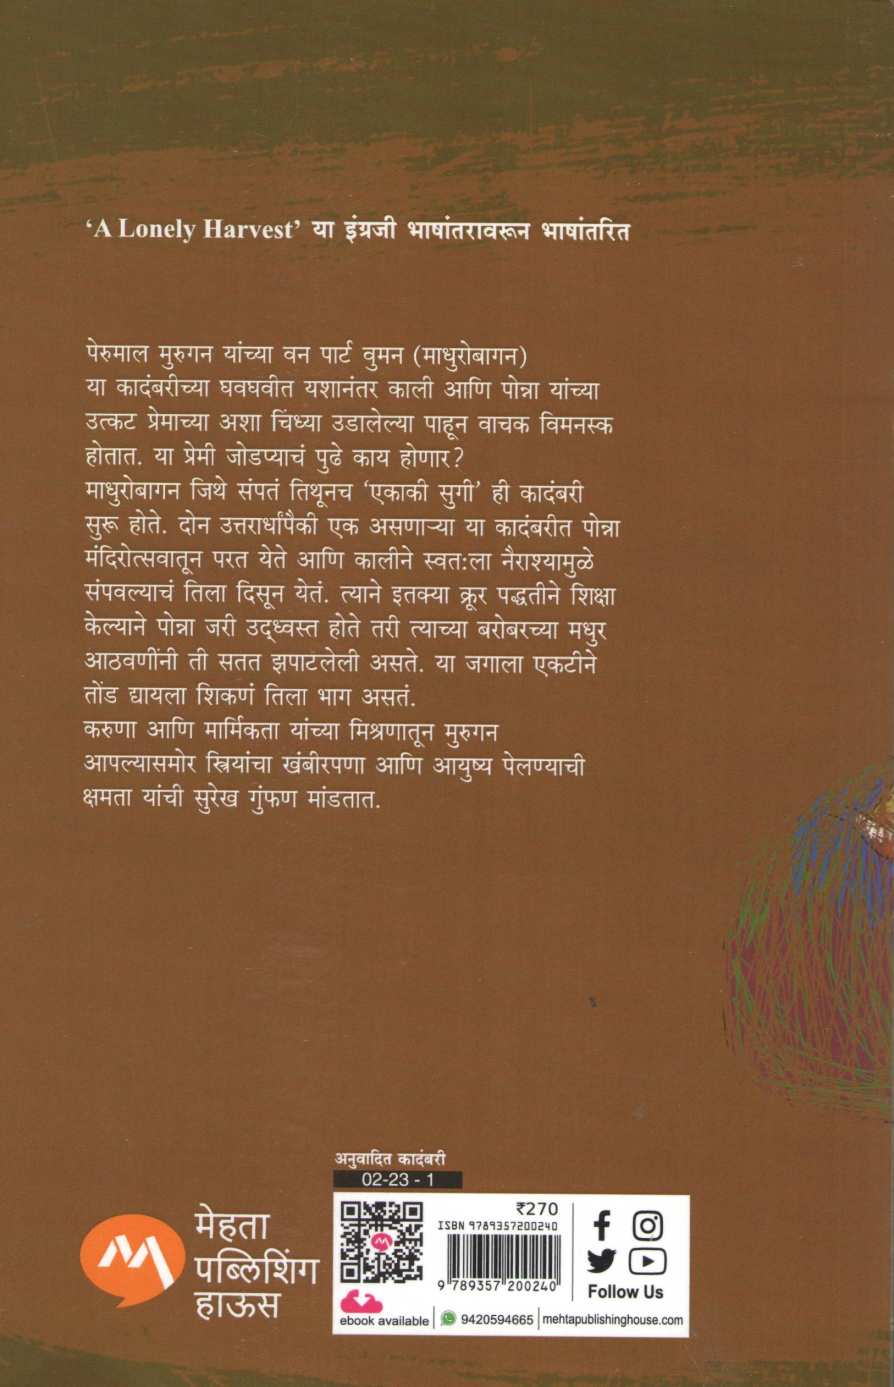 ‘A Lonely Harvest’ या इंग्रजी भाषांतरावरून भाषांतरित
पेरुमाल मुरुगन यांच्या वन पार्ट वुमन (माधुरोबागन)
या कादंबरीच्या घवघवीत यशानंतर काली आणि पोन्ना यांच्या
उत्कट प्रेमाच्या अशा चिंध्या उडालेल्या पाहून वाचक विमनस्क
होतात. या प्रेमी जोडप्याचं पुढे काय होणार?
माधुरोबागन जिथे संपतं तिथूनच ‘एकाकी सुगी’ ही कादंबरी
सुरू होते. दोन उत्तरार्धांपैकी एक असणाऱ्या या कादंबरीत पोन्ना
मंदिरोत्सवातून परत येते आणि कालीने स्वतःला नैराश्यामुळे
संपवल्याचं तिला दिसून येतं. त्याने इतक्या क्रूर पद्धतीने शिक्षा
केल्याने पोन्ना जरी उद्ध्वस्त होते तरी त्याच्या बरोबरच्या मधुर
आठवणींनी ती सतत झपाटलेली असते. या जगाला एकटीने
तोंड द्यायला शिकणं तिला भाग असतं.
करुणा आणि मार्मिकता यांच्या मिश्रणातून मुरुगन
आपल्यासमोर स्त्रियांचा खंबीरपणा आणि आयुष्य पेलण्याची
क्षमता यांची सुरेख गुंफण मांडतात.
अनुवादित कादंबरी
02-23 - 1
मेहता
पब्लिशिंग
हाऊस
₹270
ISBN 9789357200240
9 789357 200240
Follow Us
ebook available
9420594665
mehtapublishinghouse.com